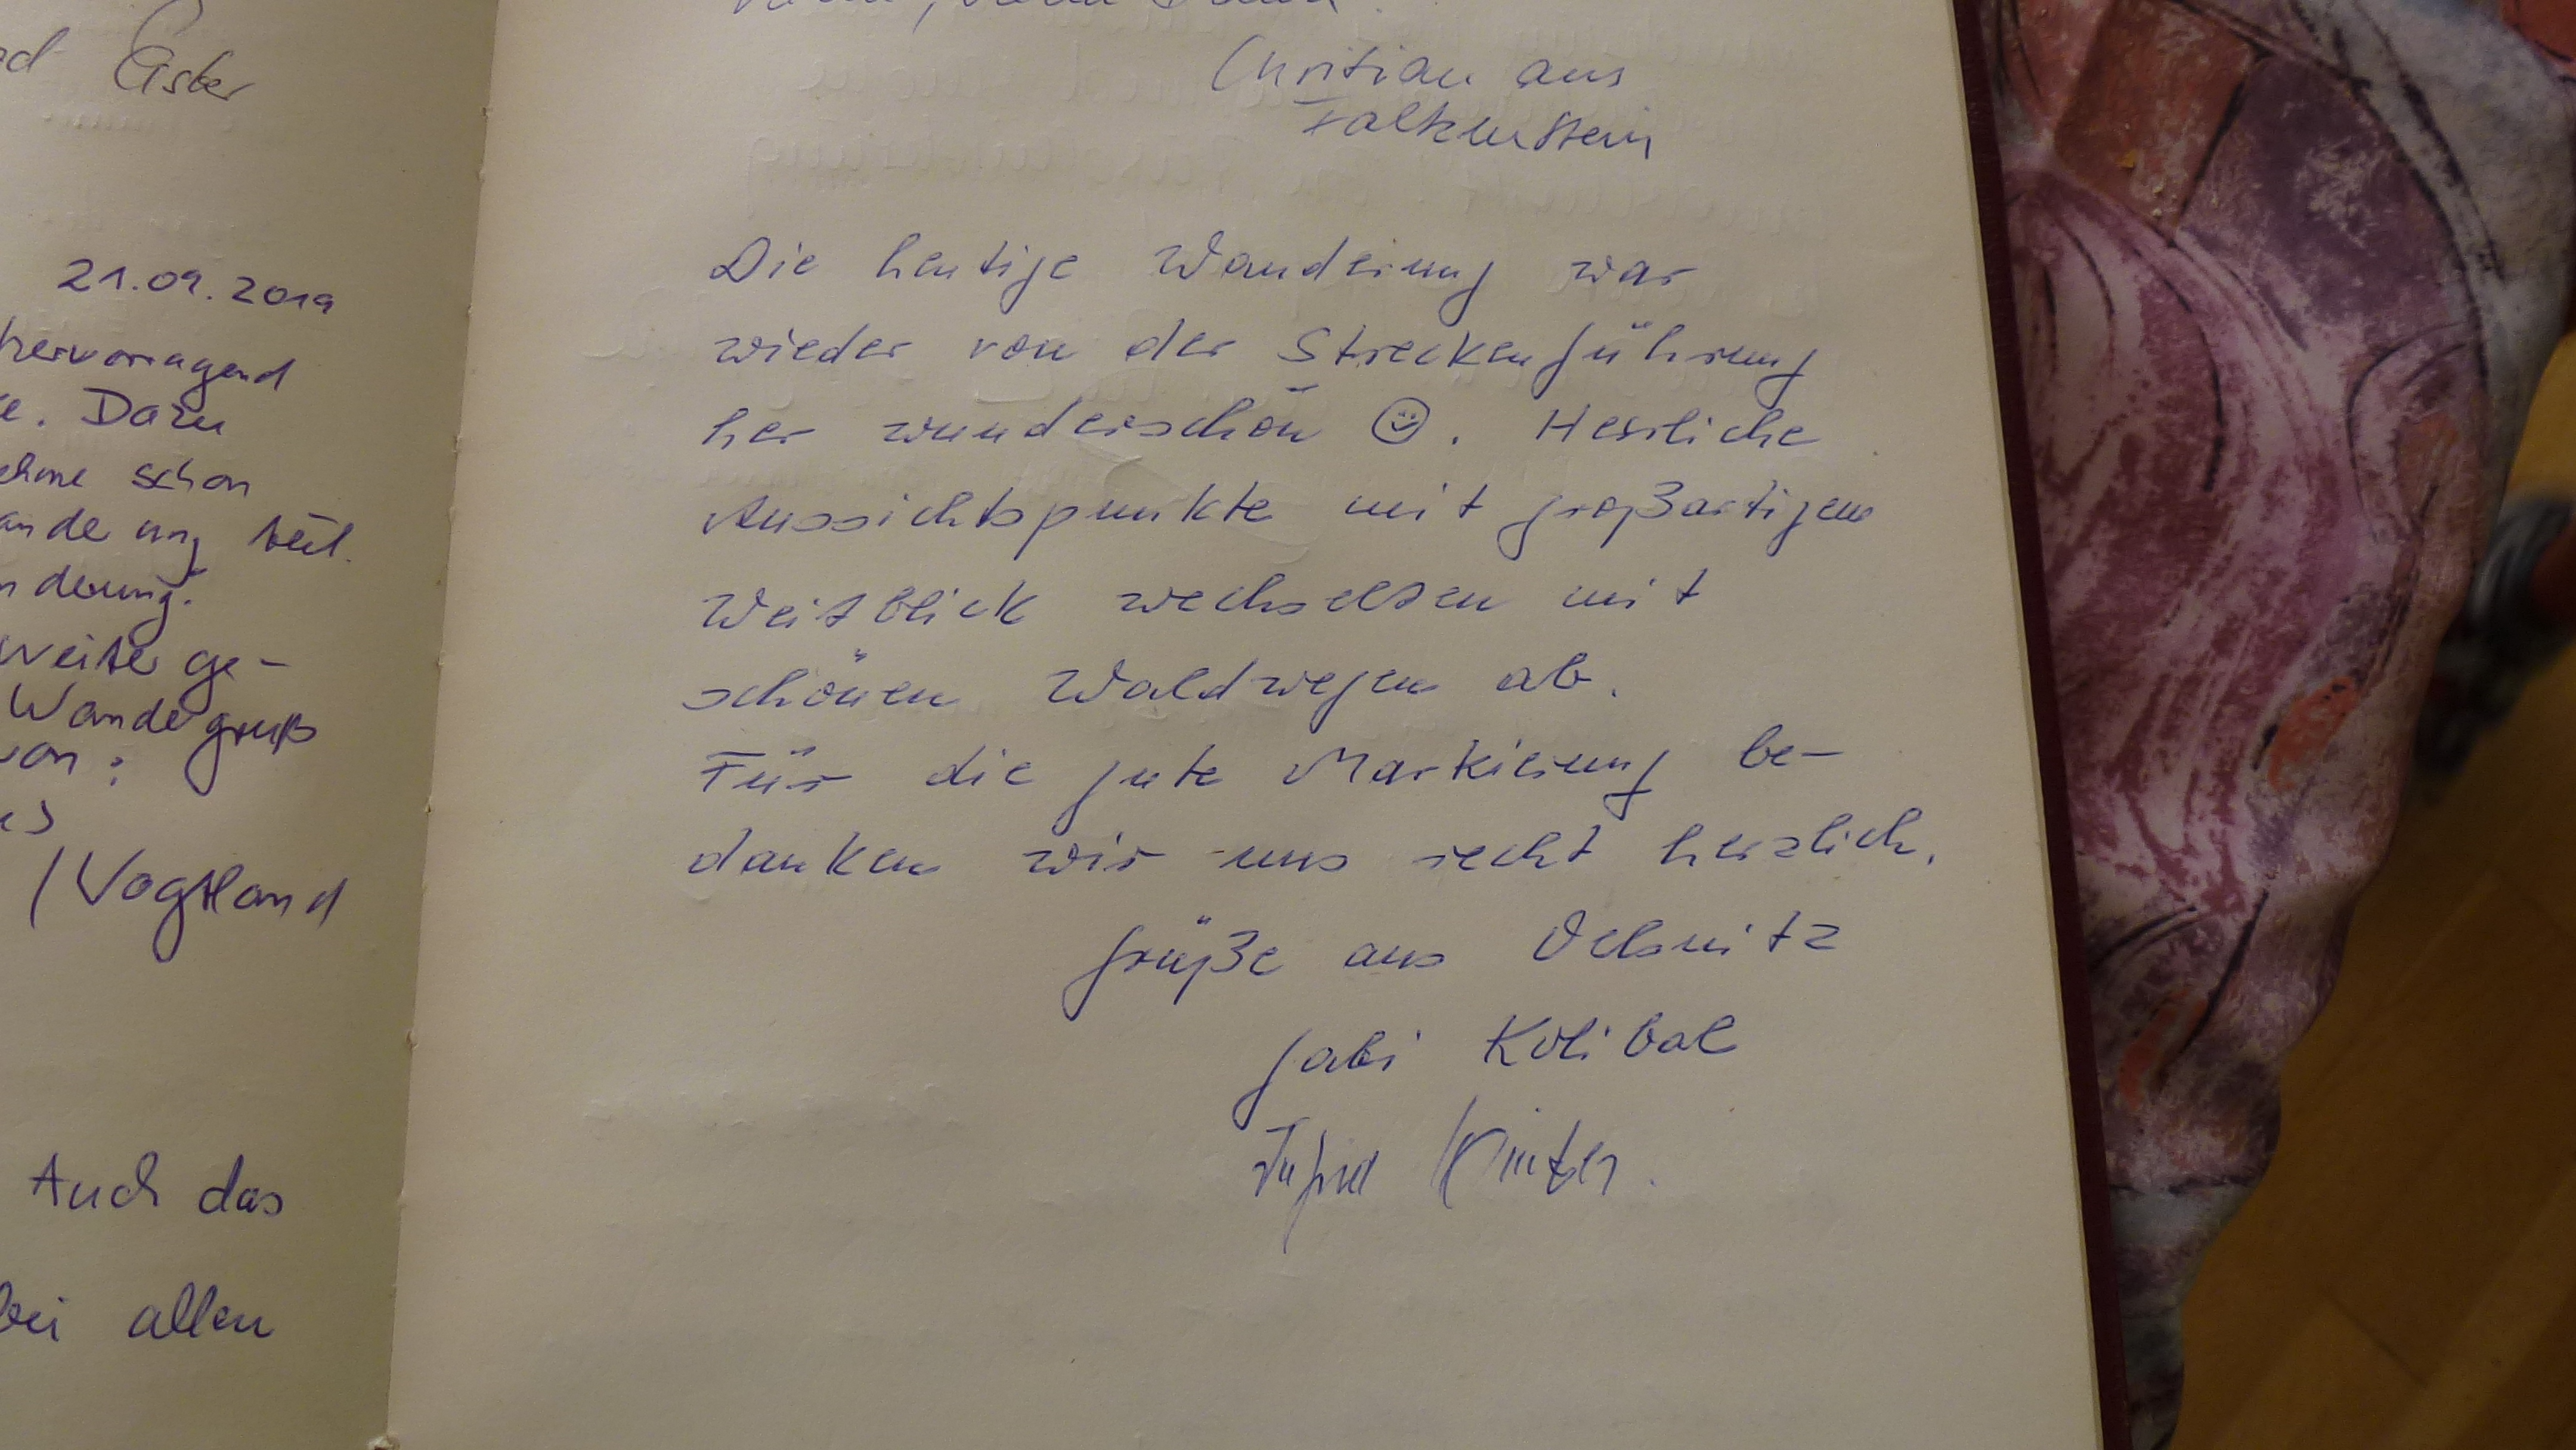 Aster
21.09.2019
hervorragend
Dazu
schon
teil.
ge-
Wandergruß
/Vogtland
Auch das
bei allen
Christian aus
Falkenstein
Die heutige Wanderung war
wieder von der Streckenführung
her wunderschön ☺. Herrliche
Aussichtspunkte mit großartigem
Weitblick wechselten mit
schönen Waldwegen ab.
Für die gute Markierung be-
danken wir uns recht herzlich.
Grüße aus Oelsnitz
Gabi Kolibal
Winter